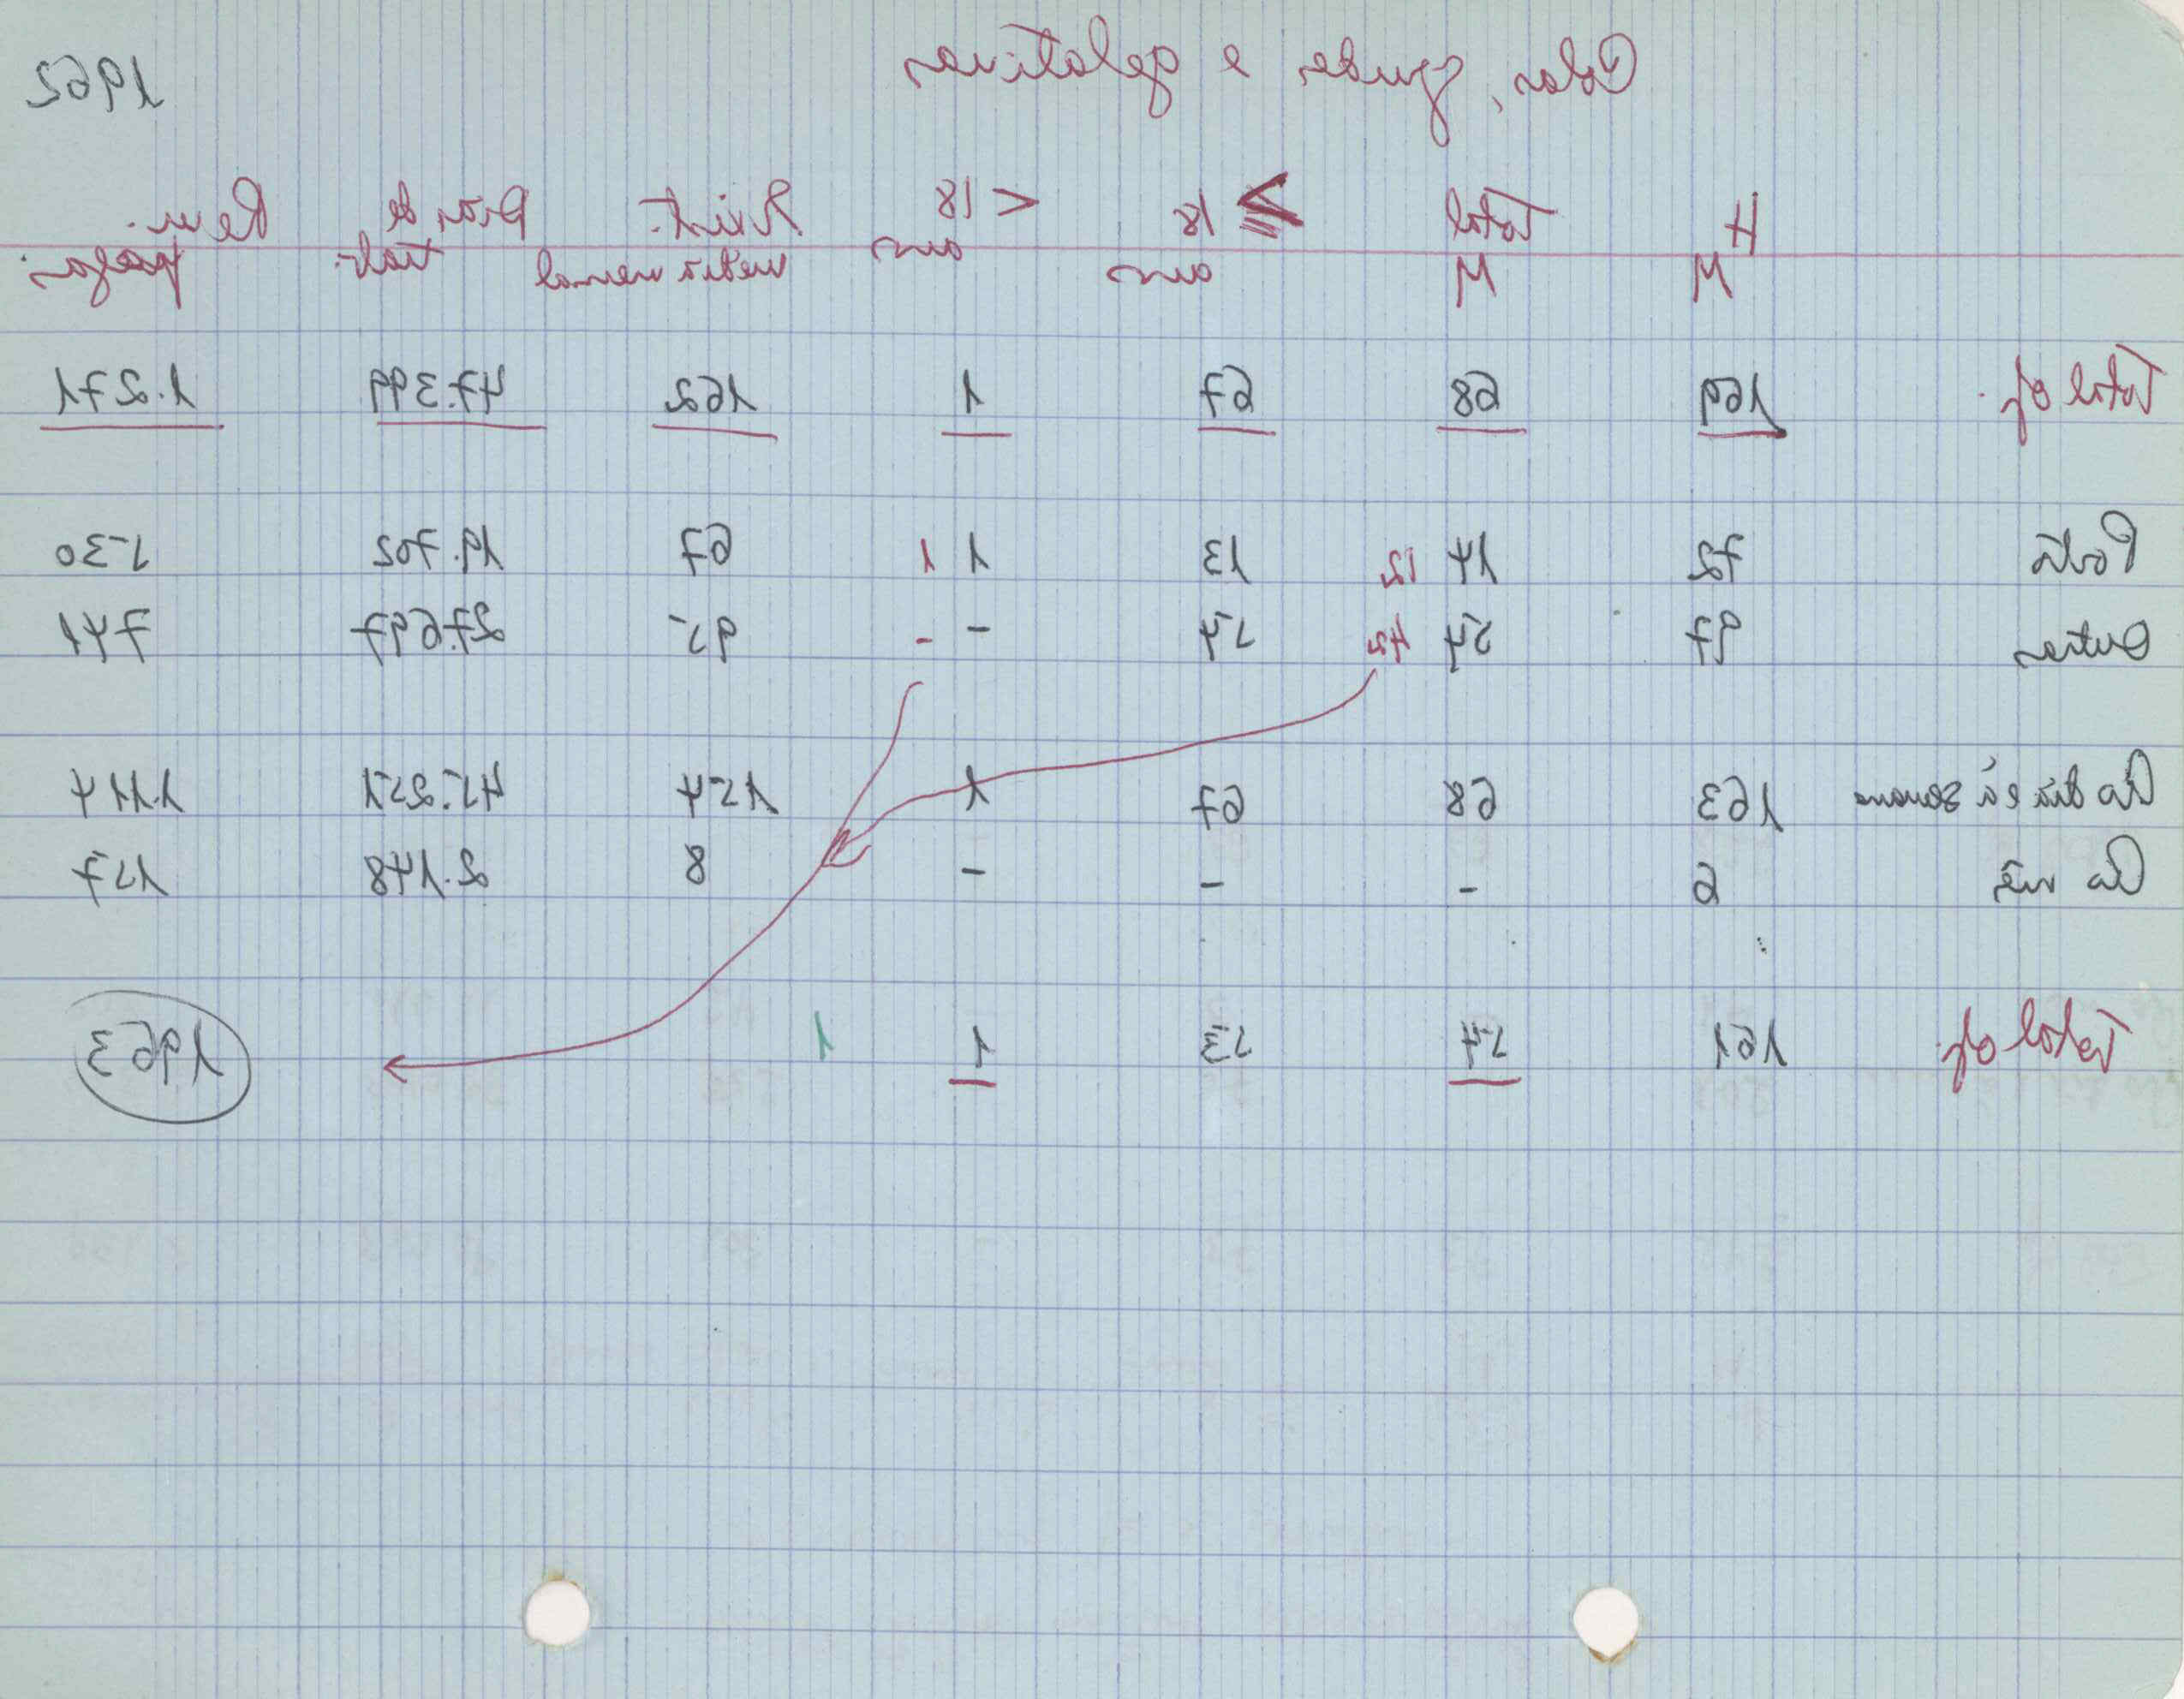 Colas, grudes e gelatinas 1962
H M Total M ≥ 18 anos < 18 anos Exist. média mensal Dias de trab. Rem. pagas
Total op. 169 68 67 1 162 47.399 1.271
Porto 72 14 12 13 1 1 67 19.702 530
Outras 97 54 42 54 - - 95 27.697 741
Ao dia e à semana 163 68 67 1 154 45.251 1.114
Ao mês 6 - - - 8 2.148 157
Total op. 161 54 53 1 1 1963